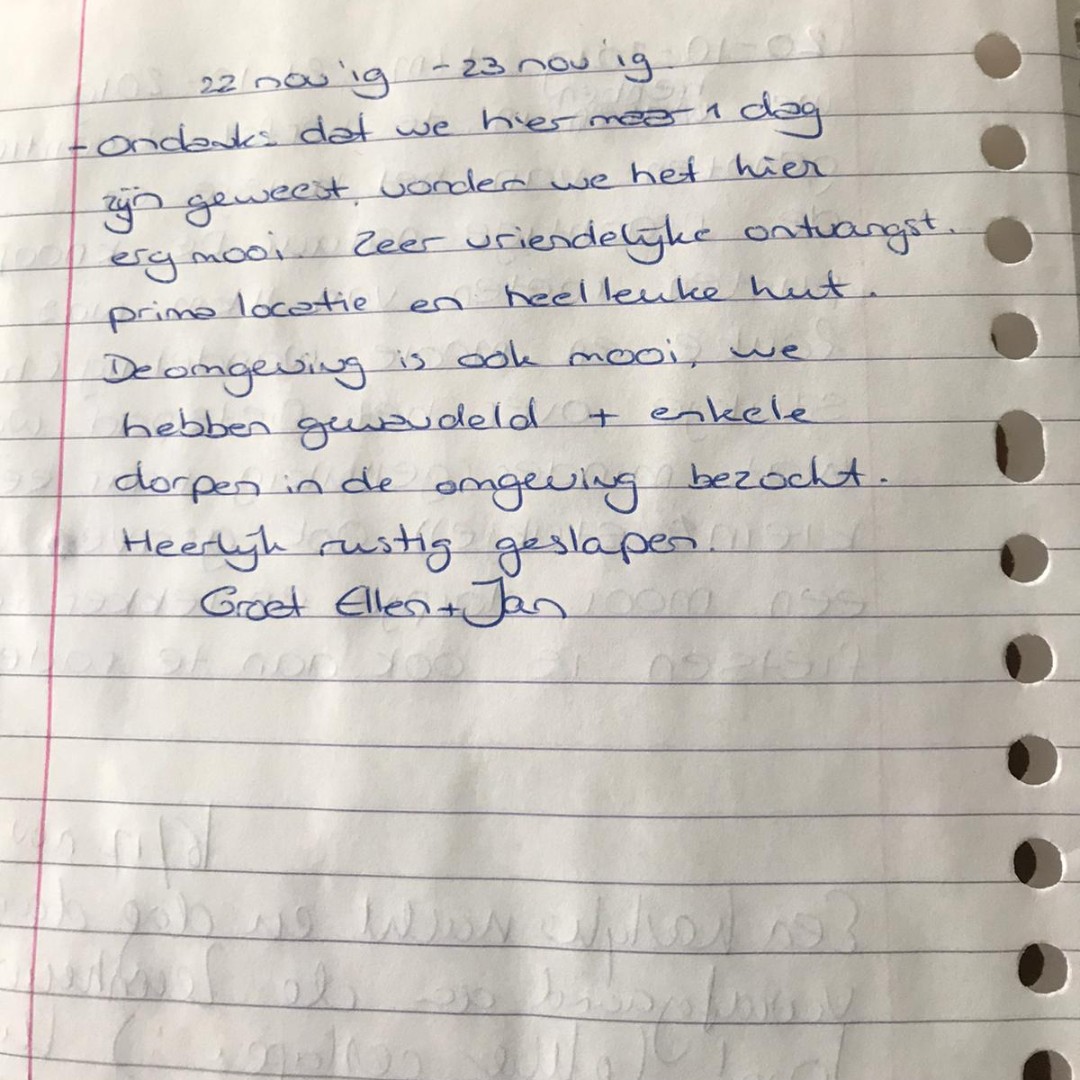 22 nov '19 - 23 nov '19.
- Ondanks dat we hier maar 1 dag
zijn geweest, vonden we het hier
erg mooi. Zeer vriendelijke ontvangst.
prima locatie en heel leuke hut.
De omgeving is ook mooi, we
hebben gewandeld + enkele
dorpen in de omgeving bezocht.
Heerlijk rustig geslapen.
Groet Ellen + Jan